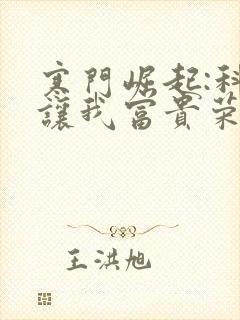 寒門崛起:科
讓我富貴榮
王洪旭